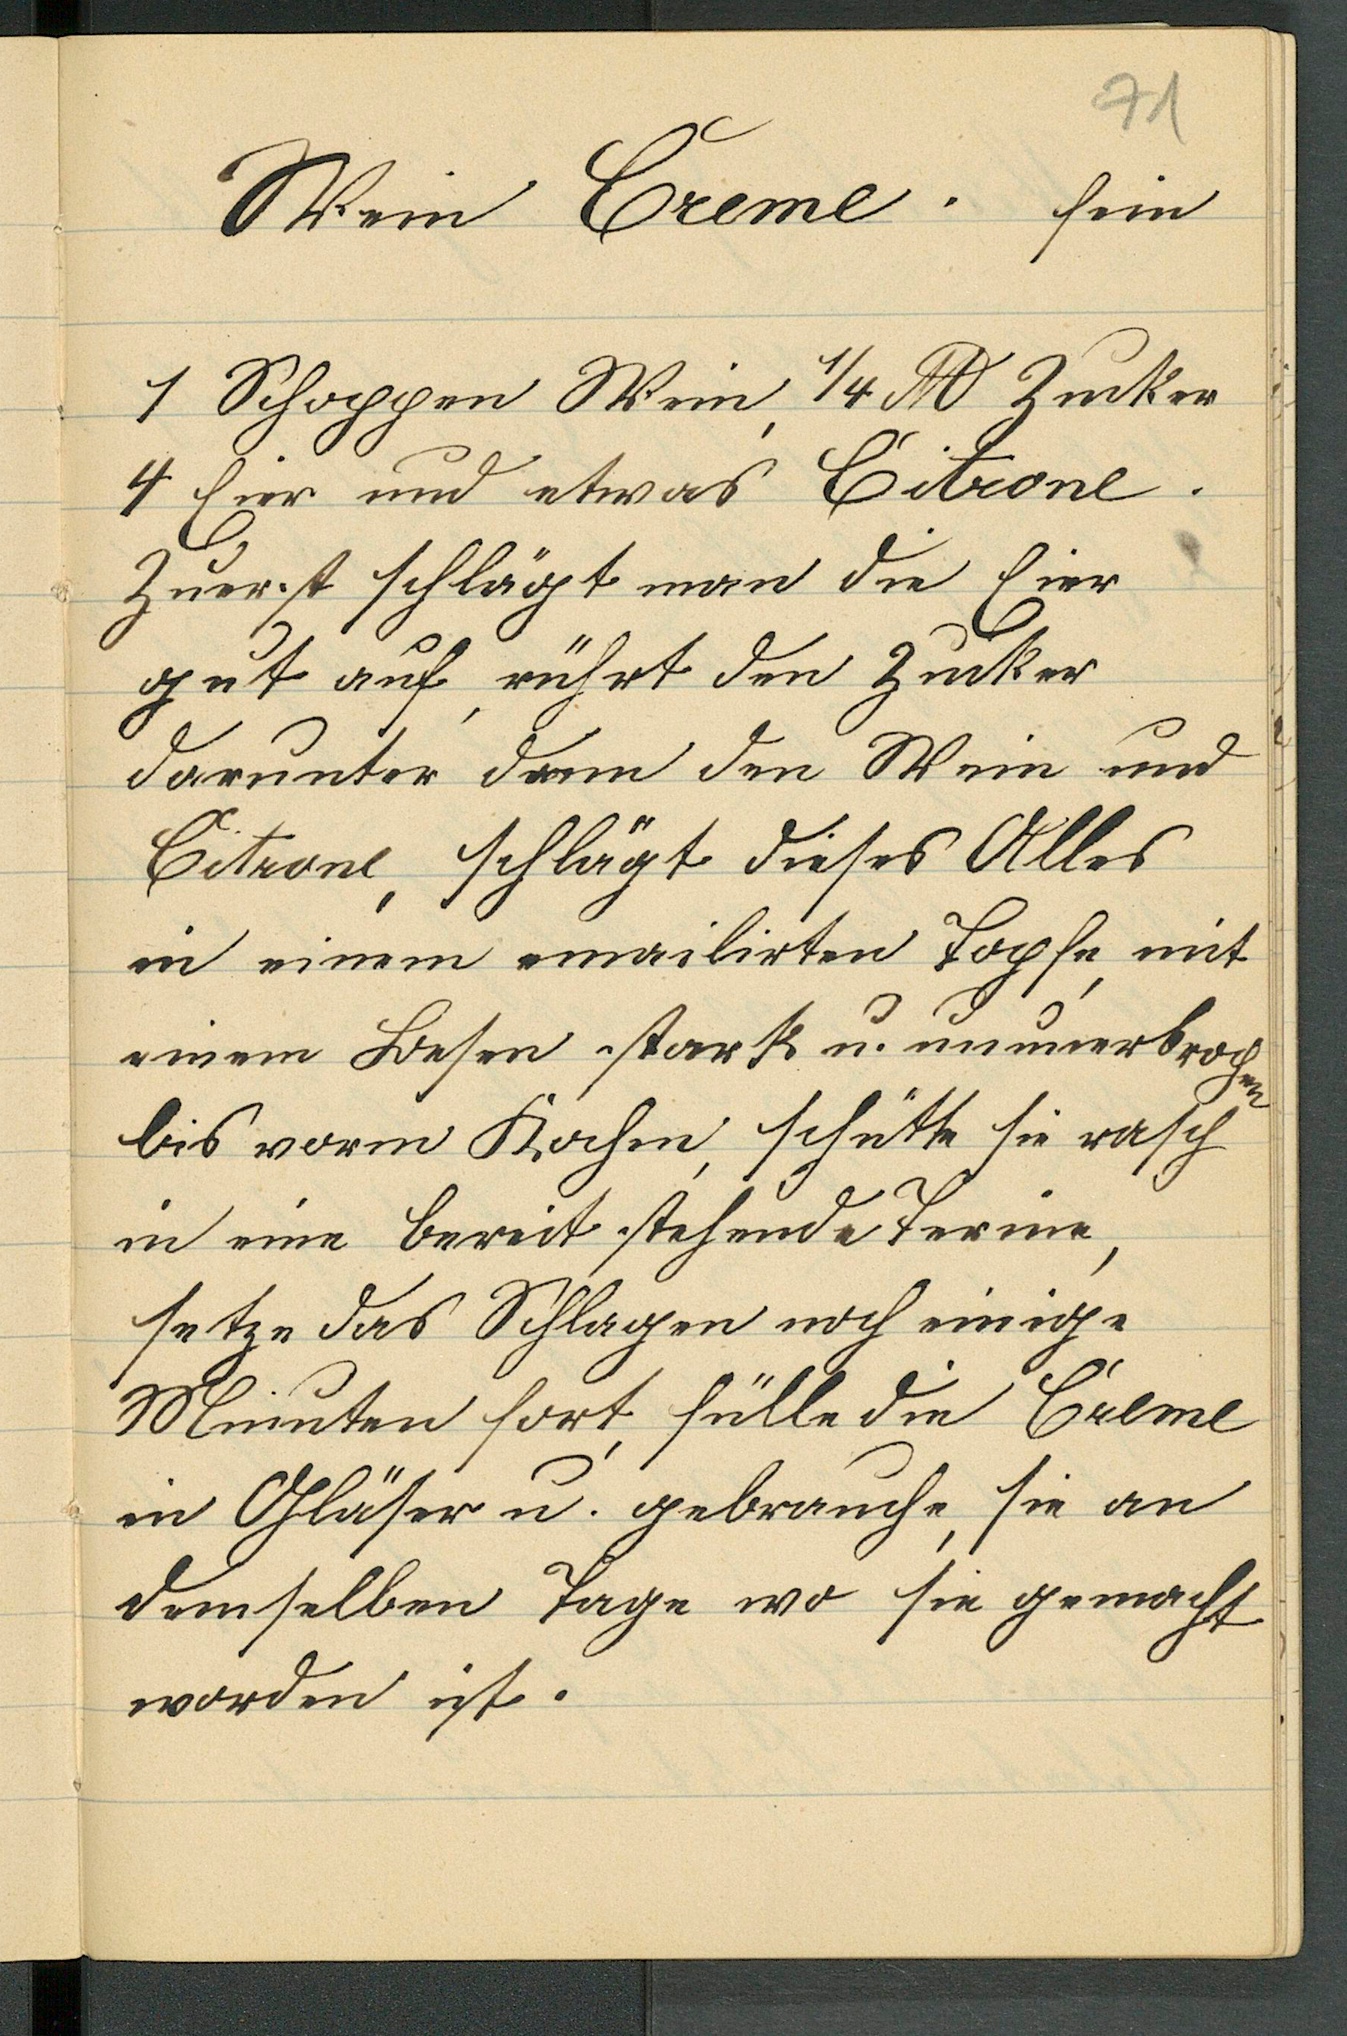 71
Wein Creme. fein
1 Schoppen Wein, 1/4 ℔ Zucker
4 Eier und etwas Citrone.
Zuerst schlägt man die Eier
gut auf, rührt den Zucker
darunter dann den Wein und
Citrone, schlägt dieses Alles
in einem emailirten Topfe, mit
einem Besen stark u. ununerbrochen
bis vorm Kochen, schütte sie rasch
in eine bereit stehende Terine,
setze das Schlagen noch einige
Minuten fort, fülle die Créme
in Gläser u. gebrauche, sie an
demselben Tage wo sie gemacht
worden ist.